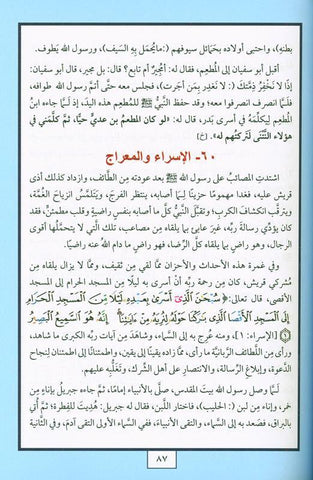 بطنه)، واحتبى أولاده بحمائل سيوفهم (:ما يُحمَل به السَّيف)، ورسول الله يَطوف.
أقبل أبو سفيان إلى المُطعِم، فقال له: أمُجيرٌ أم تابع؟ قال: بل مجير، قال أبو سفيان:
إذًا لا نَخْفِرُ ذِمَّتك (:لا نَغدِرُ بمن أجَرت)، فجلس معه حتى أتمَّ رسول الله طوافه،
فلمَّا انصرف انصرفوا معه؛ وقد حفظ النَّبيُّ ﷺ للمُطعِم هذه اليدَ، إذ لمَّا جاءه ابنُ
المُطعِم ليُكلِّمَه في أسرى بَدر، قال له: «لو كان المطعمُ بن عديٍّ حيًّا، ثمَّ كلَّمني في
هؤلاء النَّتْنَى لَتركتُهم له». [خ]
٦٠- الإسراء والمعراج
اشتدتِ المصائبُ على رسول الله ﷺ بعد عودته من الطَّائف، وازداد كذلك أذى
قريش عليه، فغدا مهمومًا حزينًا لِما أصابه، ينتظر الفرَجَ، ويَتلمَّسُ انزياحَ الغُمَّة،
ويترقَّب انكشافَ الكرب؛ وتقبَّل النَّبيُّ كلَّ ما أصابه بنفس راضيةٍ وقلب مطمئنٍّ، فقد
كان يؤدِّي رسالةَ ربِّه، غير عابئٍ بما يلقاه مِن مصاعب، تلك التي لا يتحمَّلها أقوى
الرجال، وهو راضٍ بما يلقاه كلَّ الرِّضا، فهو راضٍ ما دام اللهُ عنه راضيا.
وفي غمرة هذه الأحداث والأحزان ممَّا لقي مِن ثقيف، وممَّا لا يزال يلقاه مِن
مشركي قريش، كان مِن رحمة ربِّه أنْ أسرى به ليلًا مِن المسجد الحرام إلى المسجد
الأقصى، قال تعالى: ﴿سُبْحَٰنَ ٱلَّذِىٓ أَسْرَىٰ بِعَبْدِهِۦ لَيْلًا مِّنَ ٱلْمَسْجِدِ ٱلْحَرَامِ
إِلَى ٱلْمَسْجِدِ ٱلْأَقْصَا ٱلَّذِى بَٰرَكْنَا حَوْلَهُۥ لِنُرِيَهُۥ مِنْ ءَايَٰتِنَآ إِنَّهُۥ هُوَ ٱلسَّمِيعُ ٱلْبَصِيرُ
﴾ [الإسراء: ١]، ومنه عُرج به إلى السَّماء، وشاهَدَ مِن آيات ربِّه الكبرى ما شاهد،
ورأى مِن اللَّطائف الرَّبانية ما رأى، ممَّا زاده يقينًا إلى يقين، واطمئنانًا إلى اطمئنانٍ لنجاح
الدَّعوة، وإبلاغِ الرِّسالة، والانتصارِ على أهل الشِّرك، وتَغلُّبِه عليهم.
لَمَّا وصل رسول الله بيتَ المقدس، صلَّى بالأنبياء إمامًا، ثمَّ جاءه جبريل بإناء مِن
خمر، وإناء مِن لبن (:الحليب)، فاختار اللَّبن، فقال له جبريل: هُديتَ للفِطرة؛ ثمَّ أُتي
بالبراق، فصَعد به إلى السَّماء، والتقى الأنبياءَ، ففي السَّماء الأولى التقى آدمَ، وفي الثَّانية
٨٧